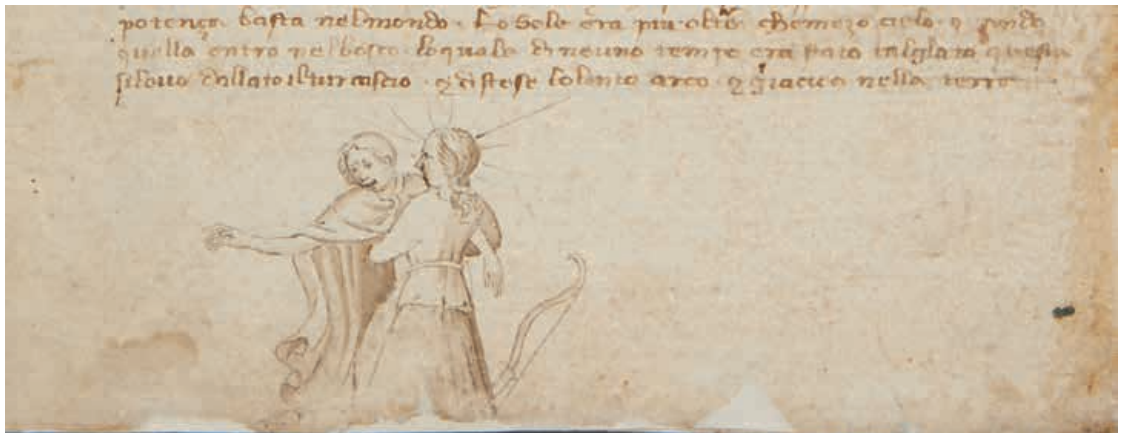 potença basta nel mondo · Lo Sole era piu oltre che mezo cielo · ⁊ quando
quella entro nel bosco · lo quale di neuno tempo era stato tagliato questa
si levo dallato il turcascio · ⁊ distese lo lento arco · ⁊ giaceva nella terra